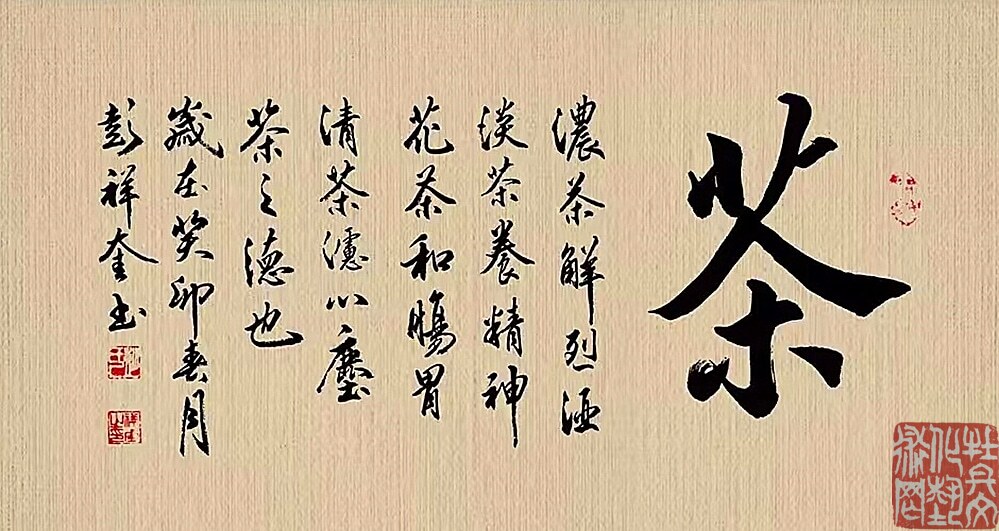 茶
濃茶解烈酒
淡茶養精神
花茶和腸胃
清茶濾心塵
茶之德也
歲在癸卯春月
彭祥奎书